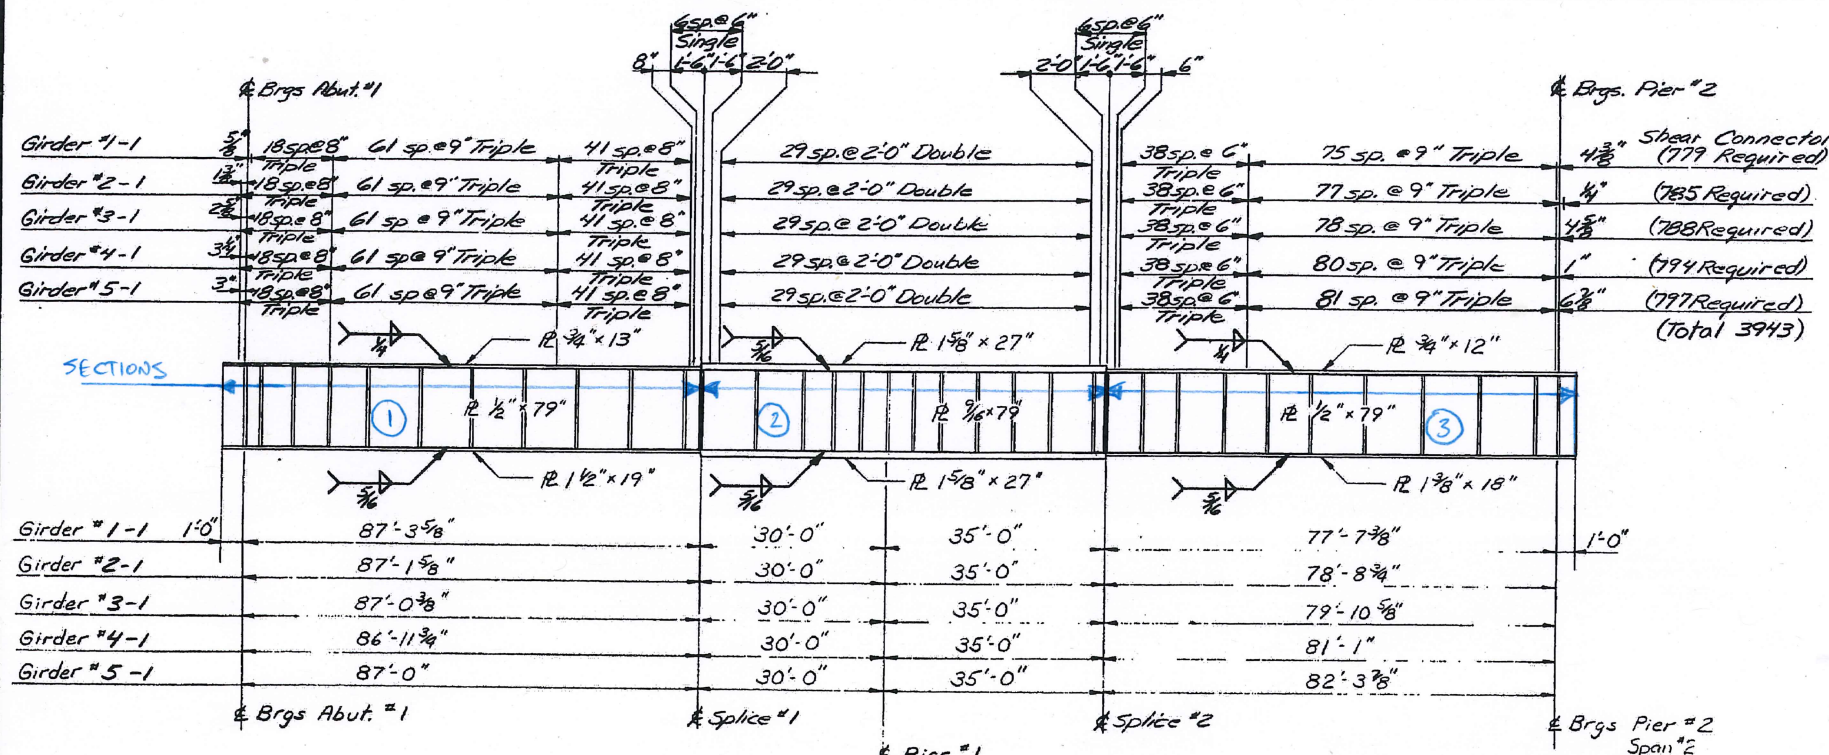 6sp.@6" 6sp.@6"
Single Single
8" 1'-6" 1'-6" 2'-0" 2'-0" 1'-6" 1'-6" 6"
℄ Brgs Abut. #1 ℄ Brgs. Pier #2
Shear Connector
Girder #1-1 5/8" 18sp@8" Triple 61 sp.@9" Triple 41 sp.@8" Triple 29 sp.@2'-0" Double 38sp.@6" Triple 75 sp. @9" Triple 4 3/8" (779 Required)
Girder #2-1 18sp.@8" Triple 61 sp. @9" Triple 41 sp.@8" Triple 29 sp.@2'-0" Double 38sp.@6" Triple 77 sp. @ 9" Triple 1/4" (785 Required)
Girder #3-1 18sp.@8" Triple 61 sp @ 9" Triple 41 sp.@8" Triple 29 sp.@ 2'-0" Double 38sp.@6" Triple 78 sp. @ 9" Triple 4 5/8" (788 Required)
Girder #4-1 3 1/4" 18sp.@8" Triple 61 sp@9" Triple 41 sp.@8" Triple 29 sp.@2'-0" Double 38sp@6" Triple 80 sp. @ 9" Triple 1" (794 Required)
Girder #5-1 3" 18sp.@8" Triple 61 sp@9" Triple 41 sp.@8" Triple 29 sp.@2'-0" Double 38sp.@6" Triple 81 sp. @ 9" Triple 6 7/8" (797 Required)
(Total 3943)
1/4 ℄ 3/4" x 13" 5/16 ℄ 1 5/8" x 27" 1/4 ℄ 3/4" x 12"
SECTIONS
1 ℄ 1/2" x 79" 2 ℄ 9/16 x 79" ℄ 1/2" x 79" 3
5/16 ℄ 1 1/2" x 19" 5/16 ℄ 1 5/8" x 27" 5/16 ℄ 1 3/8" x 18"
Girder #1-1 1'-0" 87'-3 5/8" 30'-0" 35'-0" 77'-7 3/8" 1'-0"
Girder #2-1 87'-1 5/8" 30'-0" 35'-0" 78'-8 3/4"
Girder #3-1 87'-0 3/8" 30'-0" 35'-0" 79'-10 5/8"
Girder #4-1 86'-11 3/4" 30'-0" 35'-0" 81'-1"
Girder #5-1 87'-0" 30'-0" 35'-0" 82'-3 7/8"
℄ Brgs Abut. #1 ℄ Splice #1 ℄ Splice #2 ℄ Brgs Pier #2
℄ Pier #1 Span #2